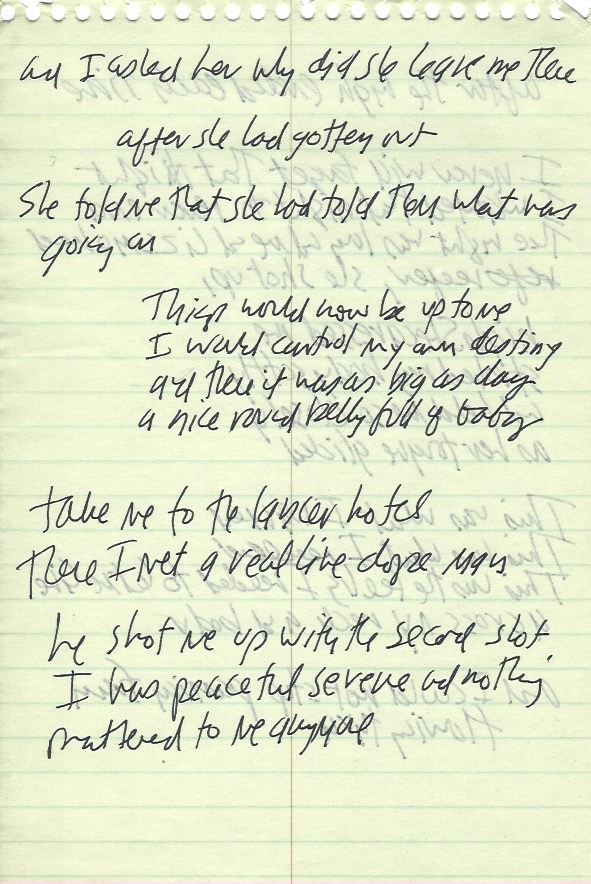 and I asked her why did she leave me there
after she had gotten out
She told me that she had told them what was
going on
Things would now be up to me
I would control my own destiny
and there it was as big as day
a nice round belly full of baby
take me to the lancer hotel
There I met a real live dope man
he shot me up with the second shot
I was peaceful serene and nothing
mattered to me anymore